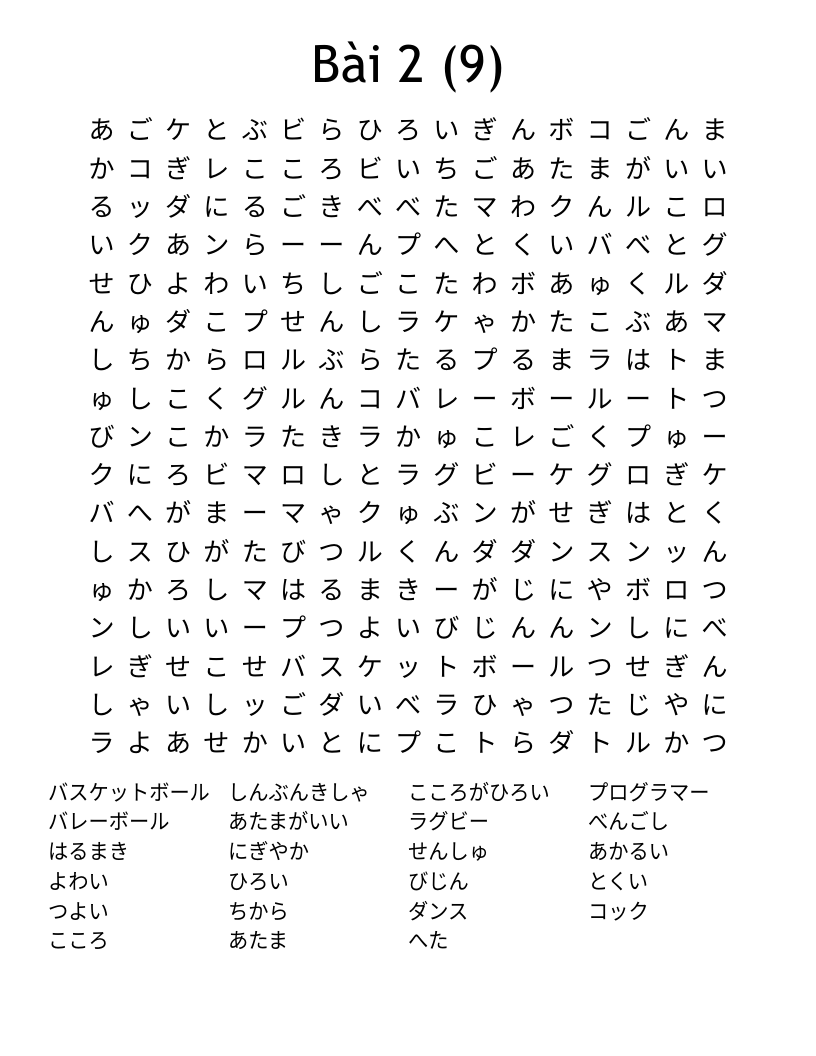 Bài 2 (9)
あ ご ケ と ぶ ビ ら ひ ろ い ぎ ん ボ コ ご ん ま
か コ ぎ レ こ こ ろ ビ い ち ご あ た ま が い い
る ッ ダ に る ご き べ べ た マ わ ク ん ル こ ロ
い ク あ ン ら ー ー ん プ へ と く い バ べ と グ
せ ひ よ わ い ち し ご こ た わ ボ あ ゅ く ル ダ
ん ゅ ダ こ プ せ ん し ラ ケ ゃ か た こ ぶ あ マ
し ち か ら ロ ル ぶ ら た る プ る ま ラ は ト ま
ゅ し こ く グ ル ん コ バ レ ー ボ ー ル ー ト つ
び ン こ か ラ た き ラ か ゅ こ レ ご く プ ゅ ー
ク に ろ ビ マ ロ し と ラ グ ビ ー ケ グ ロ ぎ ケ
バ へ が ま ー マ ゃ ク ゅ ぶ ン が せ ぎ は と く
し ス ひ が た び つ ル く ん ダ ダ ン ス ン ッ ん
ゅ か ろ し マ は る ま き ー が じ に や ボ ロ つ
ン し い い ー プ つ よ い び じ ん ん ン し に べ
レ ぎ せ こ せ バ ス ケ ッ ト ボ ー ル つ せ ぎ ん
し ゃ い し ッ ご ダ い べ ラ ひ ゃ つ た じ や に
ラ よ あ せ か い と に プ こ ト ら ダ ト ル か つ
バスケットボール しんぶんきしゃ こころがひろい プログラマー
バレーボール あたまがいい ラグビー べんごし
はるまき にぎやか せんしゅ あかるい
よわい ひろい びじん とくい
つよい ちから ダンス コック
こころ あたま へた